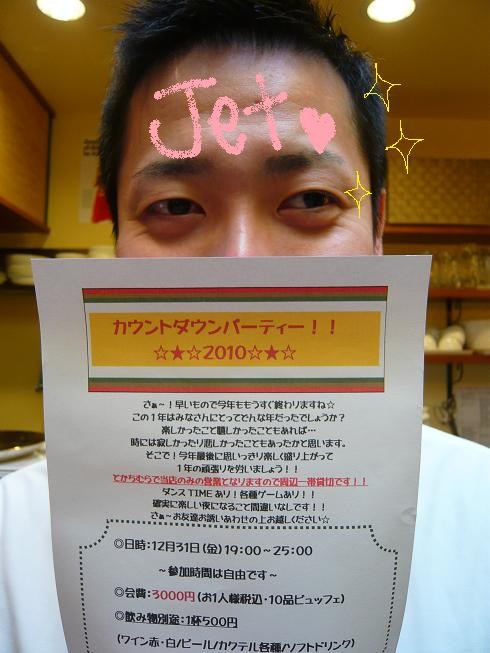 Jet♥
カウントダウンパーティー！！
☆★☆2010☆★☆
さぁ～！早いもので今年ももうすぐ終わりますね☆
この1年はみなさんにとってどんな年だったでしょうか？
楽しかったこと嬉しかったこともあれば…
時には寂しかったり悲しかったこともあったかと思います。
そこで！今年最後に思いっきり楽しく盛り上がって
1年の頑張りを労いましょう！！
とかちむらで当店のみの営業となりますので周辺一帯貸切です！！
ダンスTIMEあり！各種ゲームあり！！
確実に楽しい夜になること間違いなしです！！
さぁ～お友達お誘いあわせの上お越しください☆
◎日時：12月31日（金）19：00～25：00
～参加時間は自由です～
◎会費：3000円（お1人様税込・10品ビュッフェ）
◎飲み物別途：1杯500円
（ワイン赤・白/ビール/カクテル各種/ソフトドリンク）